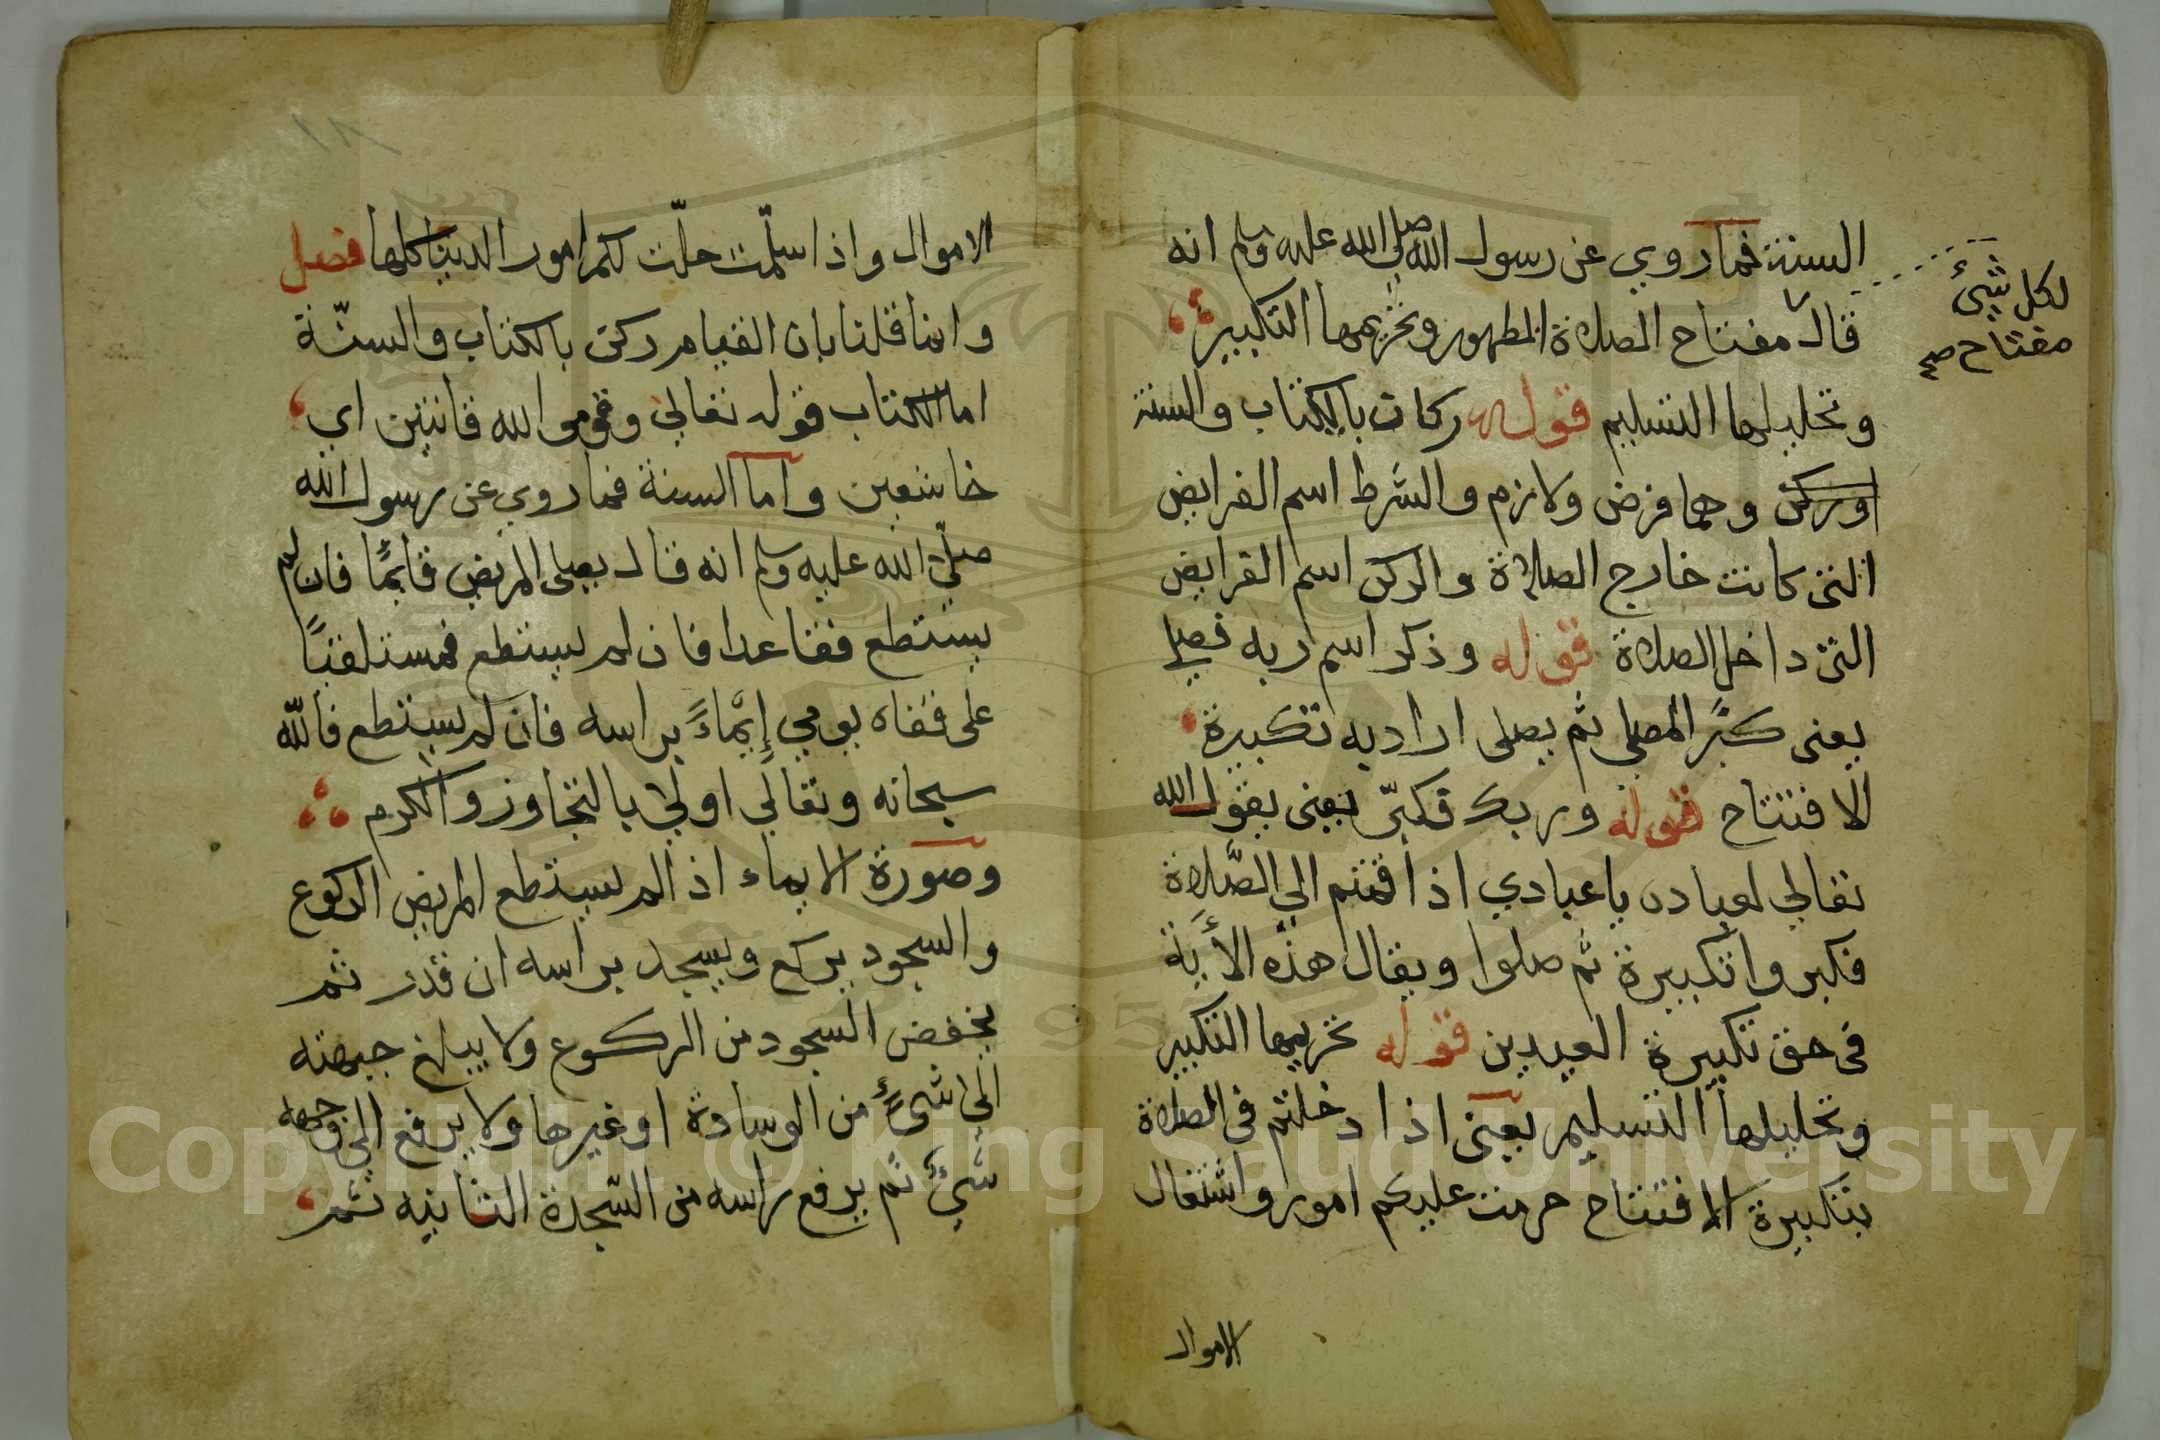 السنة فما روي عن رسول الله صلى الله عليه وسلم انه
لكل شيئ
مفتاح صح
قال مفتاح الصلاة الطهور وتحريمها التكبير
وتحليلها التسليم قوله ركات بالكتاب والسنة
اوركن وهما فرض ولازم والشرط اسم الفرايض
التى كانت خارج الصلاة والركن اسم الفرايض
التى داخل الصلاة قوله وذكر اسم ربه فصلى
يعنى كبّر المصلي ثم يصلى اراد به تكبيرة
الافتتاح قوله وربك فكبّر يعنى يقول الله
تعالي لعباده ياعبادي اذا قمتم الي الصّلاة
فكبروا تكبيرة ثم صلوا ويقال هذه الأية
فى حق تكبيرة العيدين قوله تحريمها التكبير
وتحليلها التسليم يعنى اذا دخلتم فى الصلاة
بتكبيرة الافتتاح حرمت عليكم امور واشتغال
الاموال
١١
الاموال واذا سلّمت حلّت لكم امور الدنيا كلها فصل
وانما قلنا بان القيام ركن بالكتاب والسنّة
اما الكتاب قوله تعالي وقوموا لله قانتين اي
خاشعين واما السنة فما روي عن رسول الله
صلّى الله عليه وسلم انه قال يصلى المريض قايمًا فان لم
يستطع فقاعدا فان لم يستطع فمستلقيًا
على قفاه يومي إيماءً براسه فان لم يستطع فاللّه
سبحانه وتعالي اولى بالتجاوز والكرم
وصورة الايماء اذا لم يستطع المريض الركوع
والسجود يركع ويسجد براسه ان قدر ثم
يخفض السجود من الركوع ولا يبلغ جبهته
الى شيءٍ من الوسادة او غيرها ولا يرفع الي وجهه
شيئ ثم يرفع راسه من السّجدة الثانيه ثم
Copyright © King Saud University